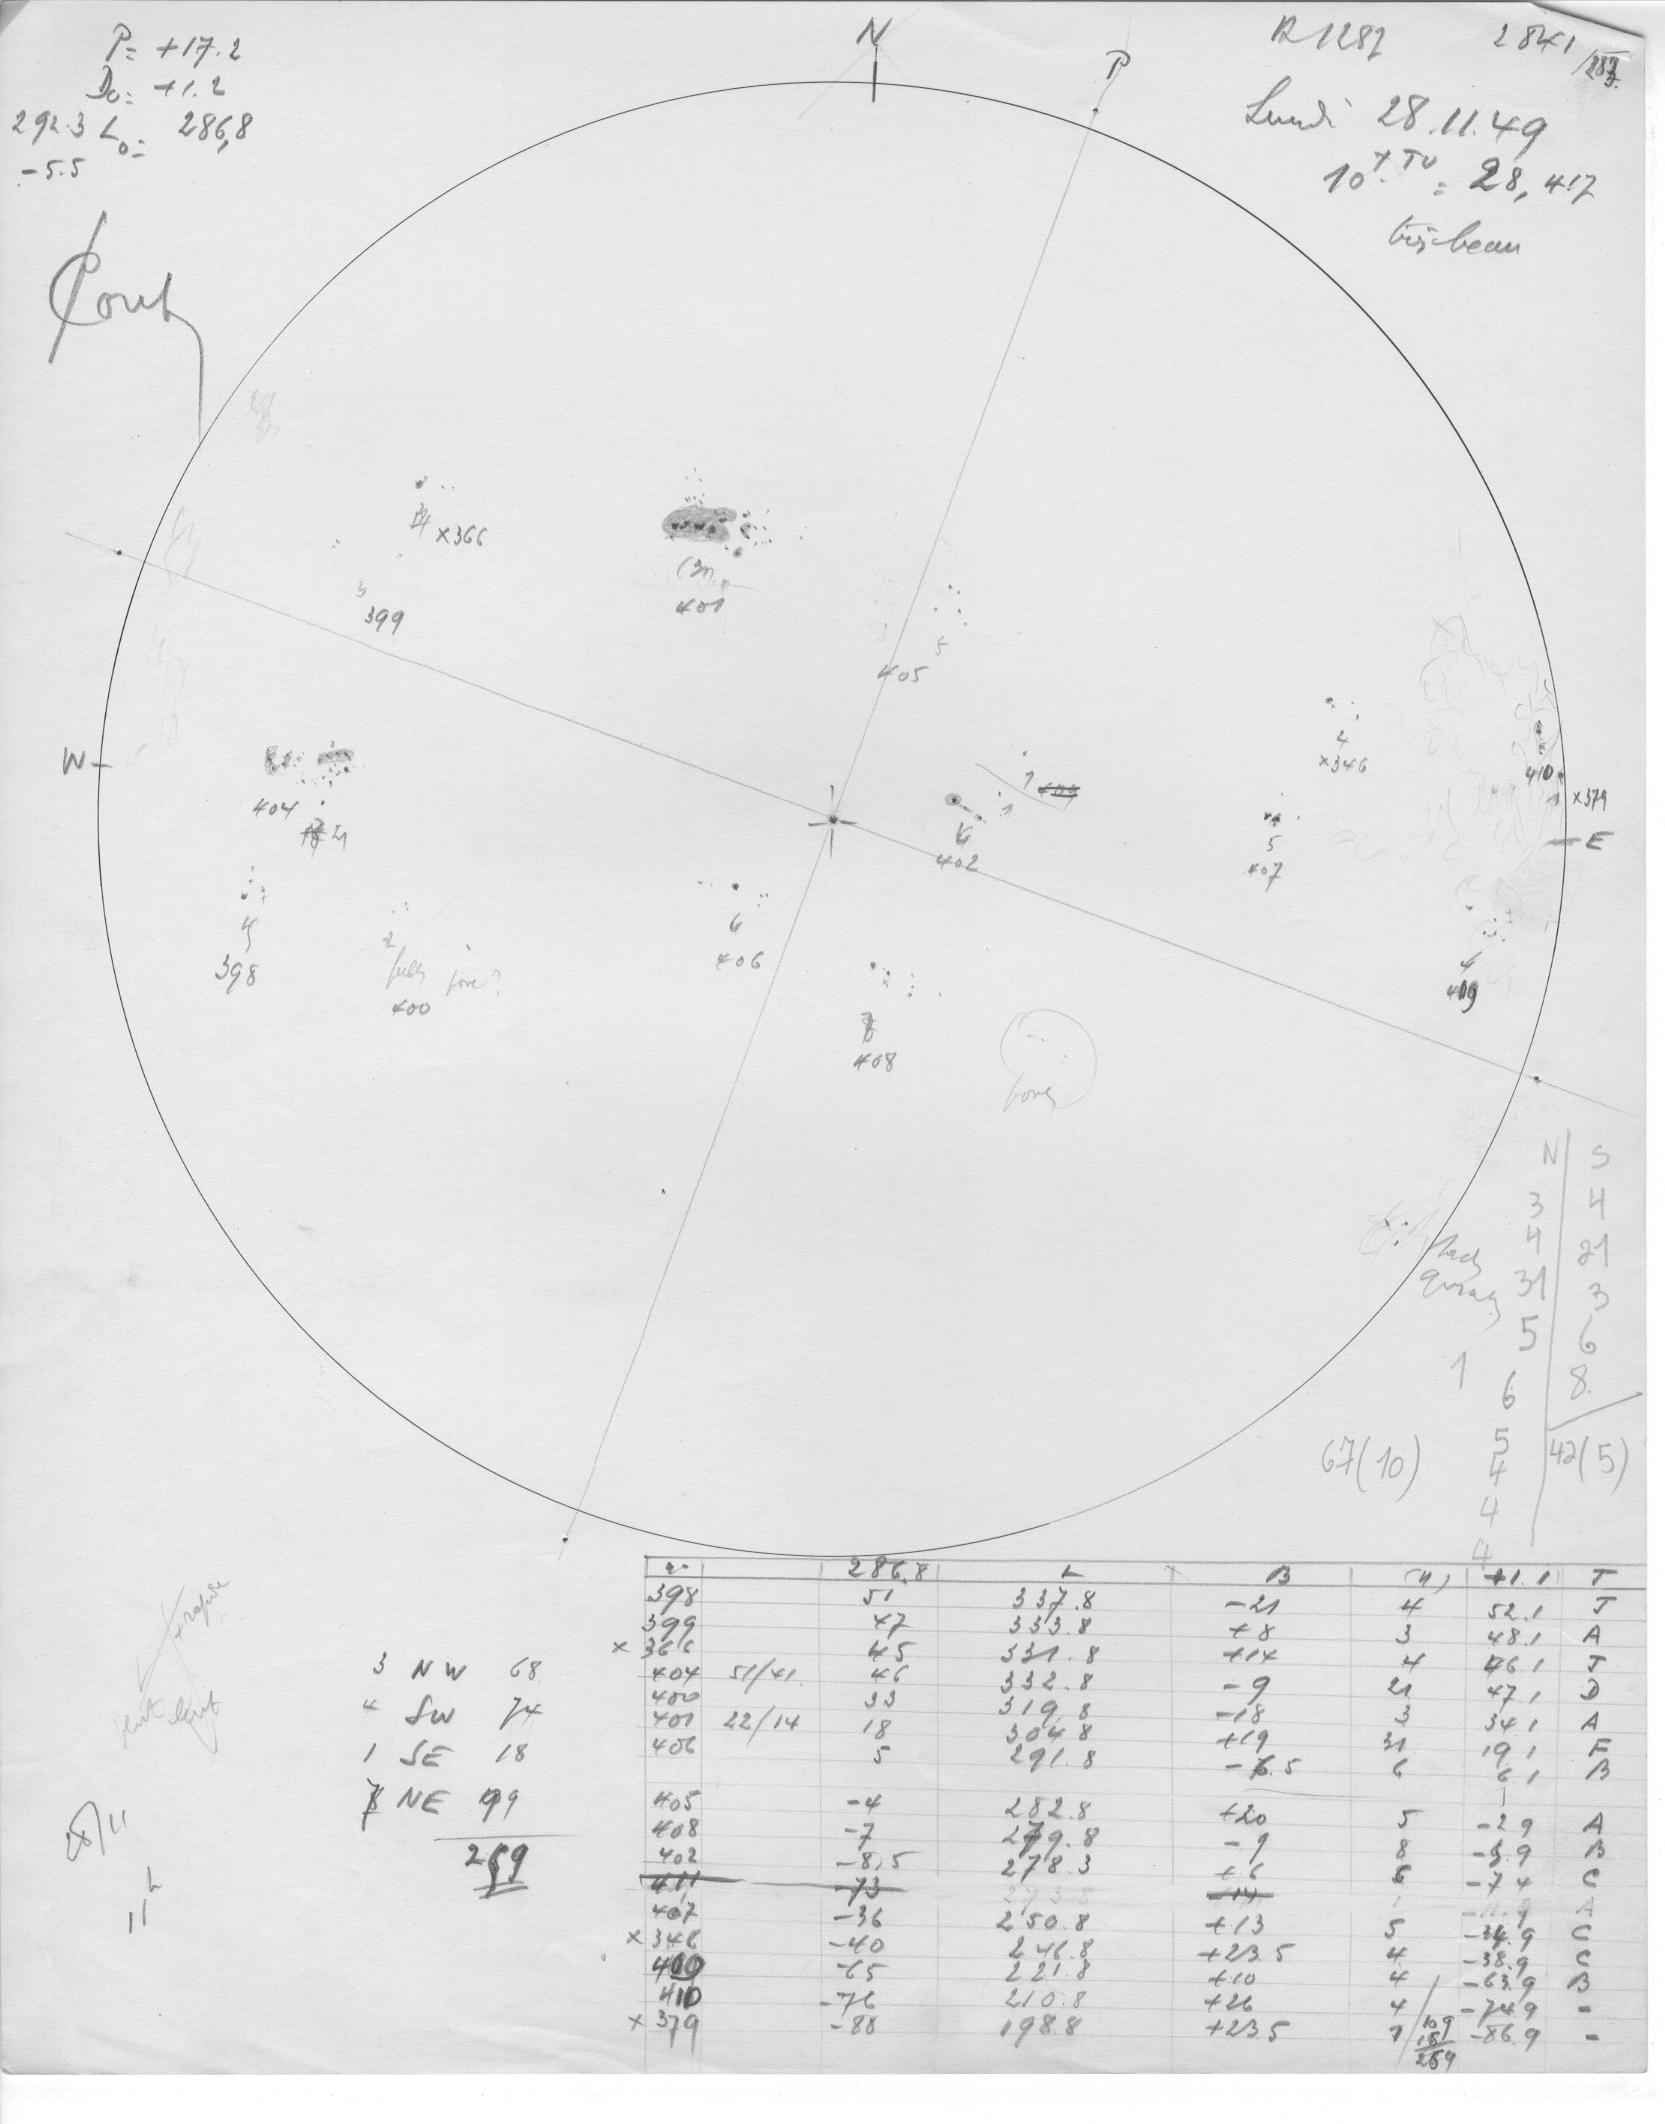 P= +17.2
D0= +1.2
292.3 L0= 286,8
-5.5
N
P
2841
Lundi 28.11.49
10 TU = 28,417
très beau
4 x366
3
399
401
5
405
W-
404
21
4
398
2
400
6
406
6
402
1
1
8
408
4
x346
5
407
410
1 x379
-E
4
409
N S
3 4
4 21
31 3
5 6
1 6 8
5
67(10) 42(5)
4
4
4
n° 286,8 L B (n) +1.1 T
398 51 337.8 -21 4 52.1 J
399 47 333.8 +8 3 48.1 A
x 366 45 331.8 +14 4 46.1 J
404 51/41 46 332.8 -9 21 47.1 D
400 33 319.8 -18 3 34.1 A
401 22/14 18 304.8 +19 31 19.1 F
406 5 291.8 -6.5 6 6.1 B
405 -4 282.8 +20 5 -2.9 A
408 -7 279.8 -9 8 -5.9 B
402 -8.5 278.3 +6 6 -7.4 C
407 -36 250.8 +13 5 -34.9 C
x 346 -40 246.8 +23.5 4 -38.9 C
409 -65 221.8 +10 4 -63.9 B
410 -76 210.8 +26 4 -74.9 -
x 379 -88 198.8 +23.5 1 -86.9 -
109
259
3 NW 68
4 SW 74
1 SE 18
NE 99
259
28/11
11h